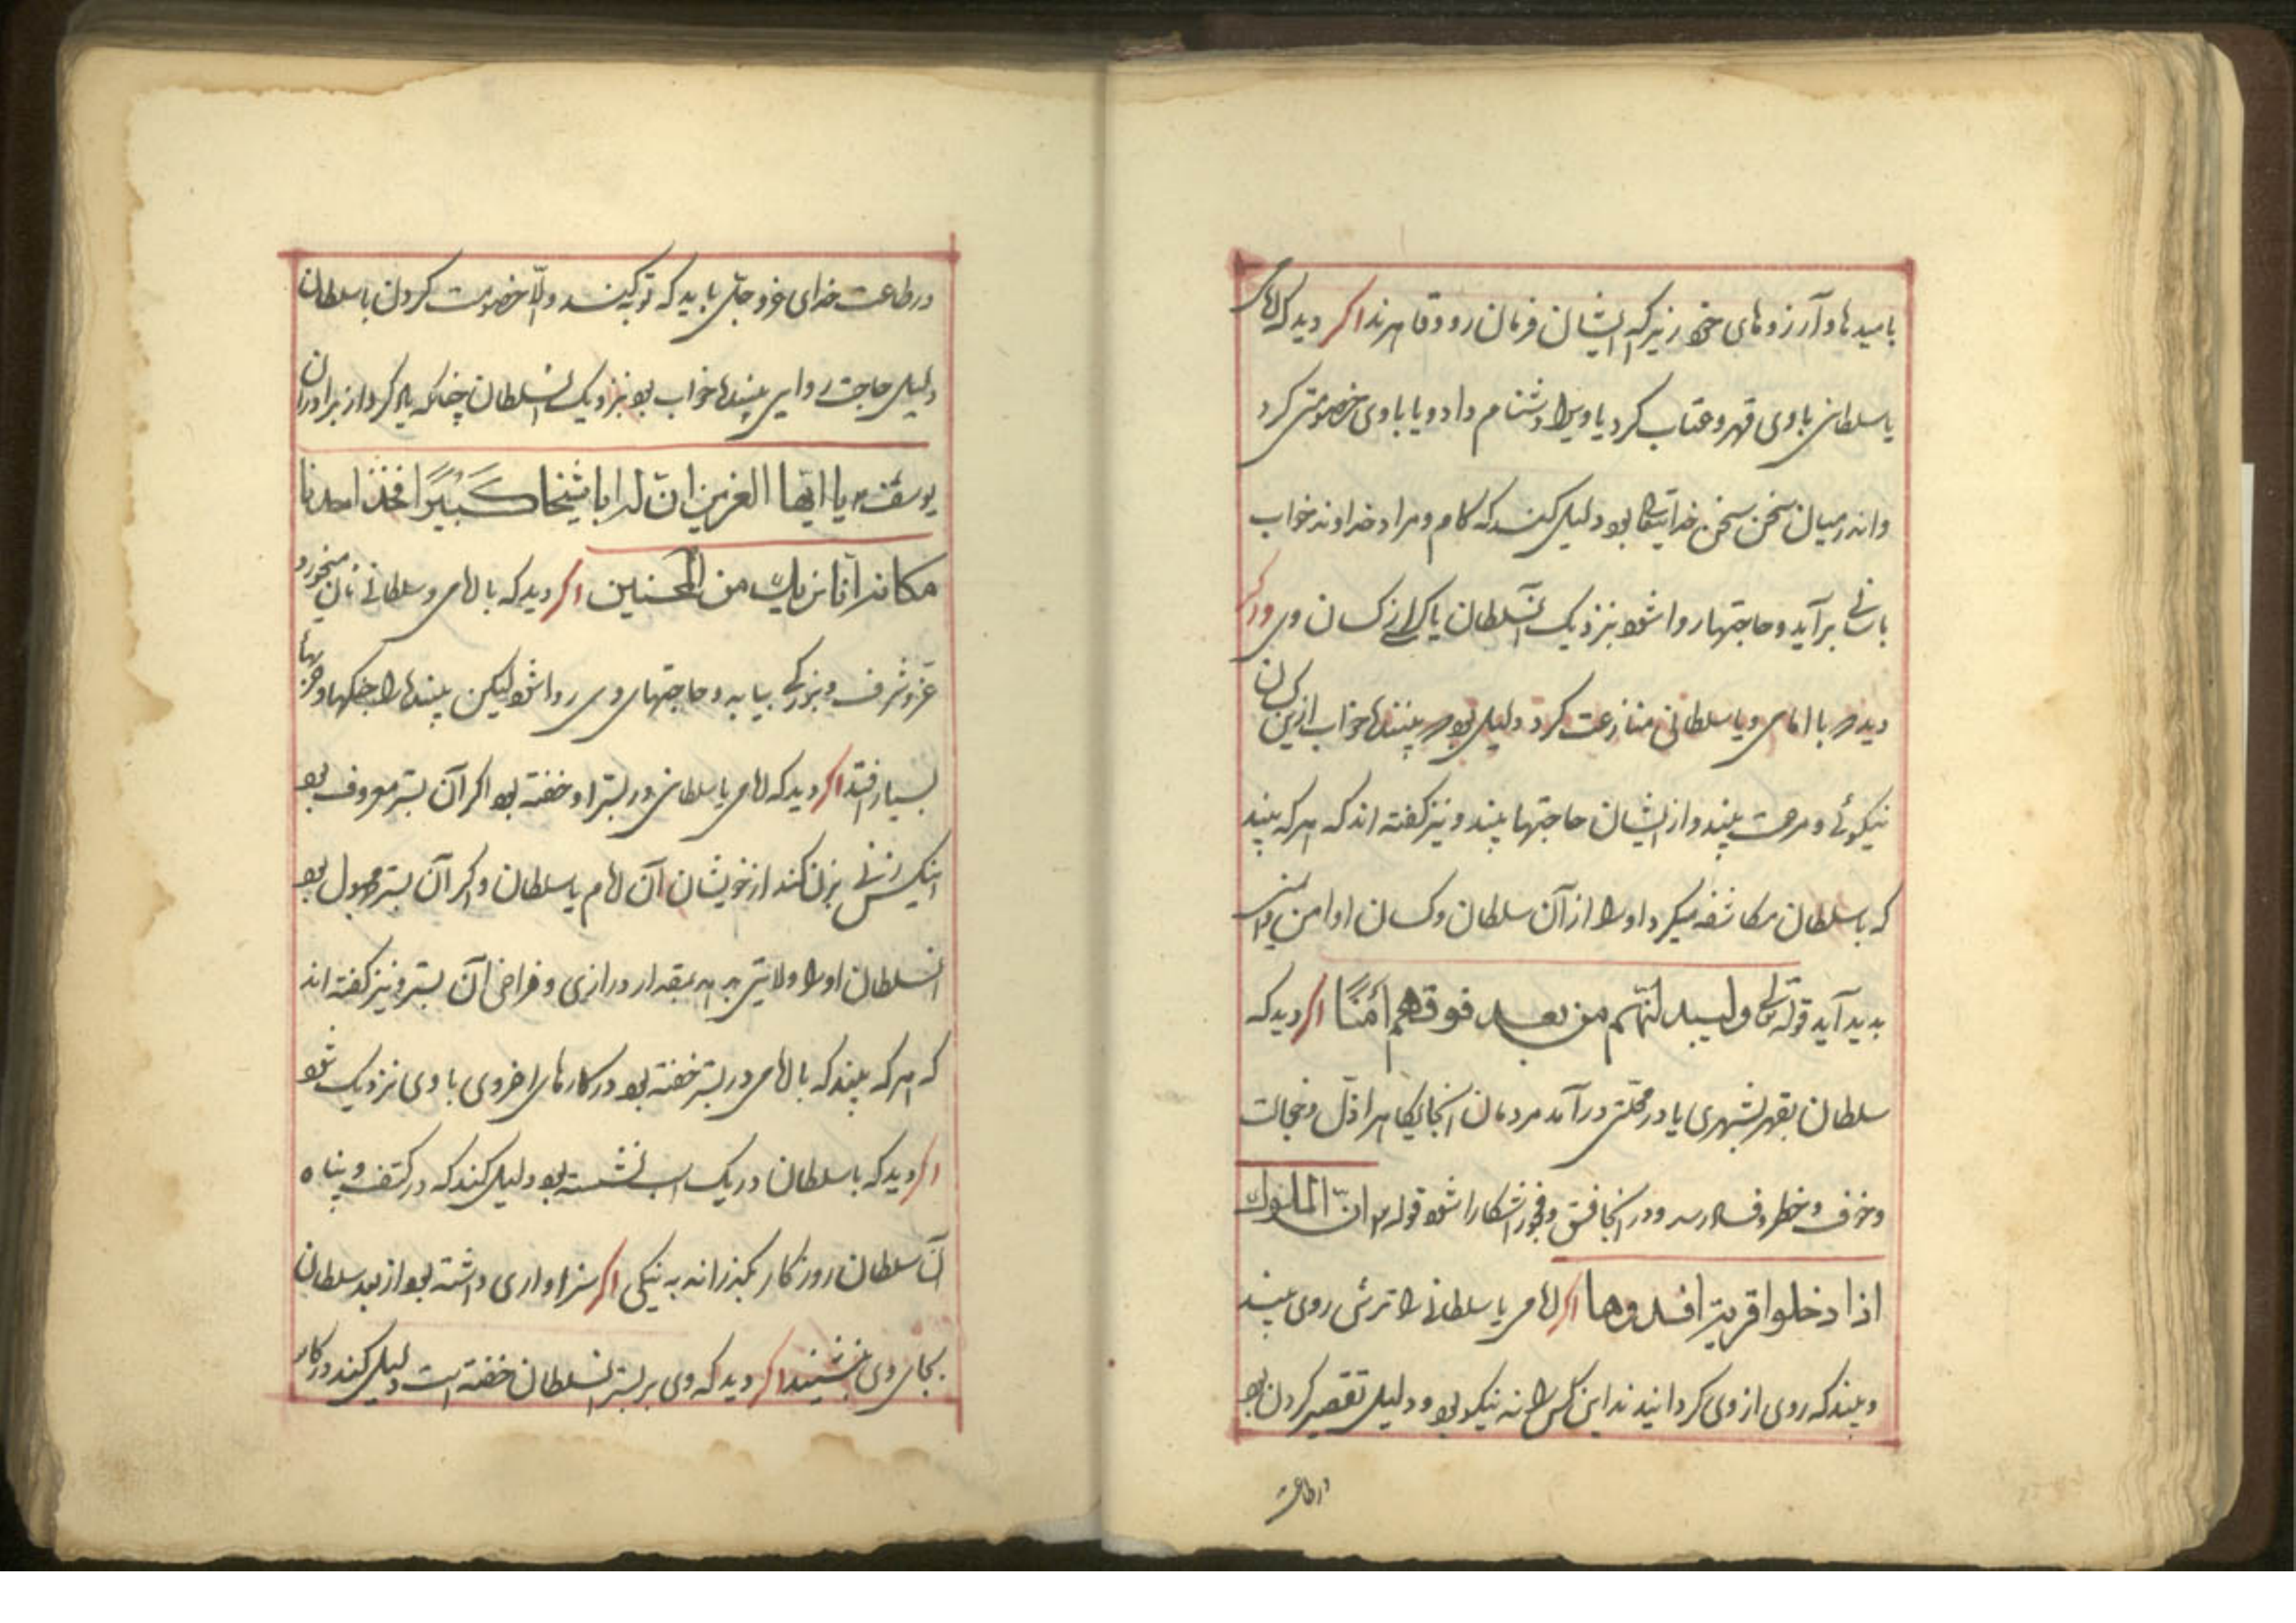 بامیدها و آرزوهای خود زیرا که ایشان فرمان رود و قاهرند اکر دید که امامی
یا سلطانی باوی قهر و عتاب کرد یا ویرا دشنام داد و یا باوی خصومتی کرد
واندر میان سخن سخن خدایتعالی بود دلیل کند که کام و مراد خداوند خواب
باسانی برآید و حاجتها روا شود بنزدیک آنسلطان یا کسی از کسان وی و اکر
دید که با امامی و یا سلطانی منازعت کرد دلیل بود که بیننده خواب ازین کسان
نیکوئی و مرحمت بیند و از ایشان حاجتها بیند و نیز کفته اند که هر که بیند
که با سلطان مکاشفه میکرد او را از آن سلطان و کسان او امن و
بدید آید قوله تعالی ولیبدلنهم من بعد فوقهم أمنًا اکر دید که
سلطان بقهر بشهری یا در محلتی درآمد مردمان آنجایکاه را ذل و خجالت
وخوف و خطر و فساد رسد و در آنجا فسق و فجور آشکارا شود قوله تع انّ الملوك
اذا دخلوا قریة افسدوها اکر امامی یا سلطانی را ترش روی بیند
و بیند که روی از وی کردانیدند این کس را نه نیکو بود و دلیل تقصیر کردن بود
درطاعت
درطاعت خدای عزوجل باید که توبه کند والّا خصومت کردن با سلطان
دلیل حاجت روایی بیننده خواب بود نزدیک آنسلطان چنانکه یاد کرد از برادران
یوسف یا ایها العزیز ان له ابا شیخا کَبیْرًا فخذ احدنا
مکانه انا نریك من المحسنین اکر دید که با امامی و سلطانی نان میخورد
عزو شرف و بزرکی بیابد و حاجتهای وی روا شود لیکن بیننده را جنکها و حربها
بسیار افتد اکر دید که امامی یا سلطانی در بستر او خفته بود اکر آن بستر معروف بود
اینکس زنی بزن کند از خویشان آن امام یا سلطان و اکر آن بستر مجهول بود
آنسلطان او را ولایتی دهد بمقدار درازی و فراخی آن بستر و نیز کفته اند
که هر که بیند که با امامی در بستر خفته بود در کارهای اخروی باوی نزدیک شود
اکر دید که با سلطان در یک اسب نشسته بود دلیل کند که در کنف و پناه
آن سلطان روزکار بکذراند به نیکی اکر سزاواری داشته بود از بعد سلطان
بجای وی بنشیند اکر دید که وی بر بستر آنسلطان خفته است دلیل کند در کار